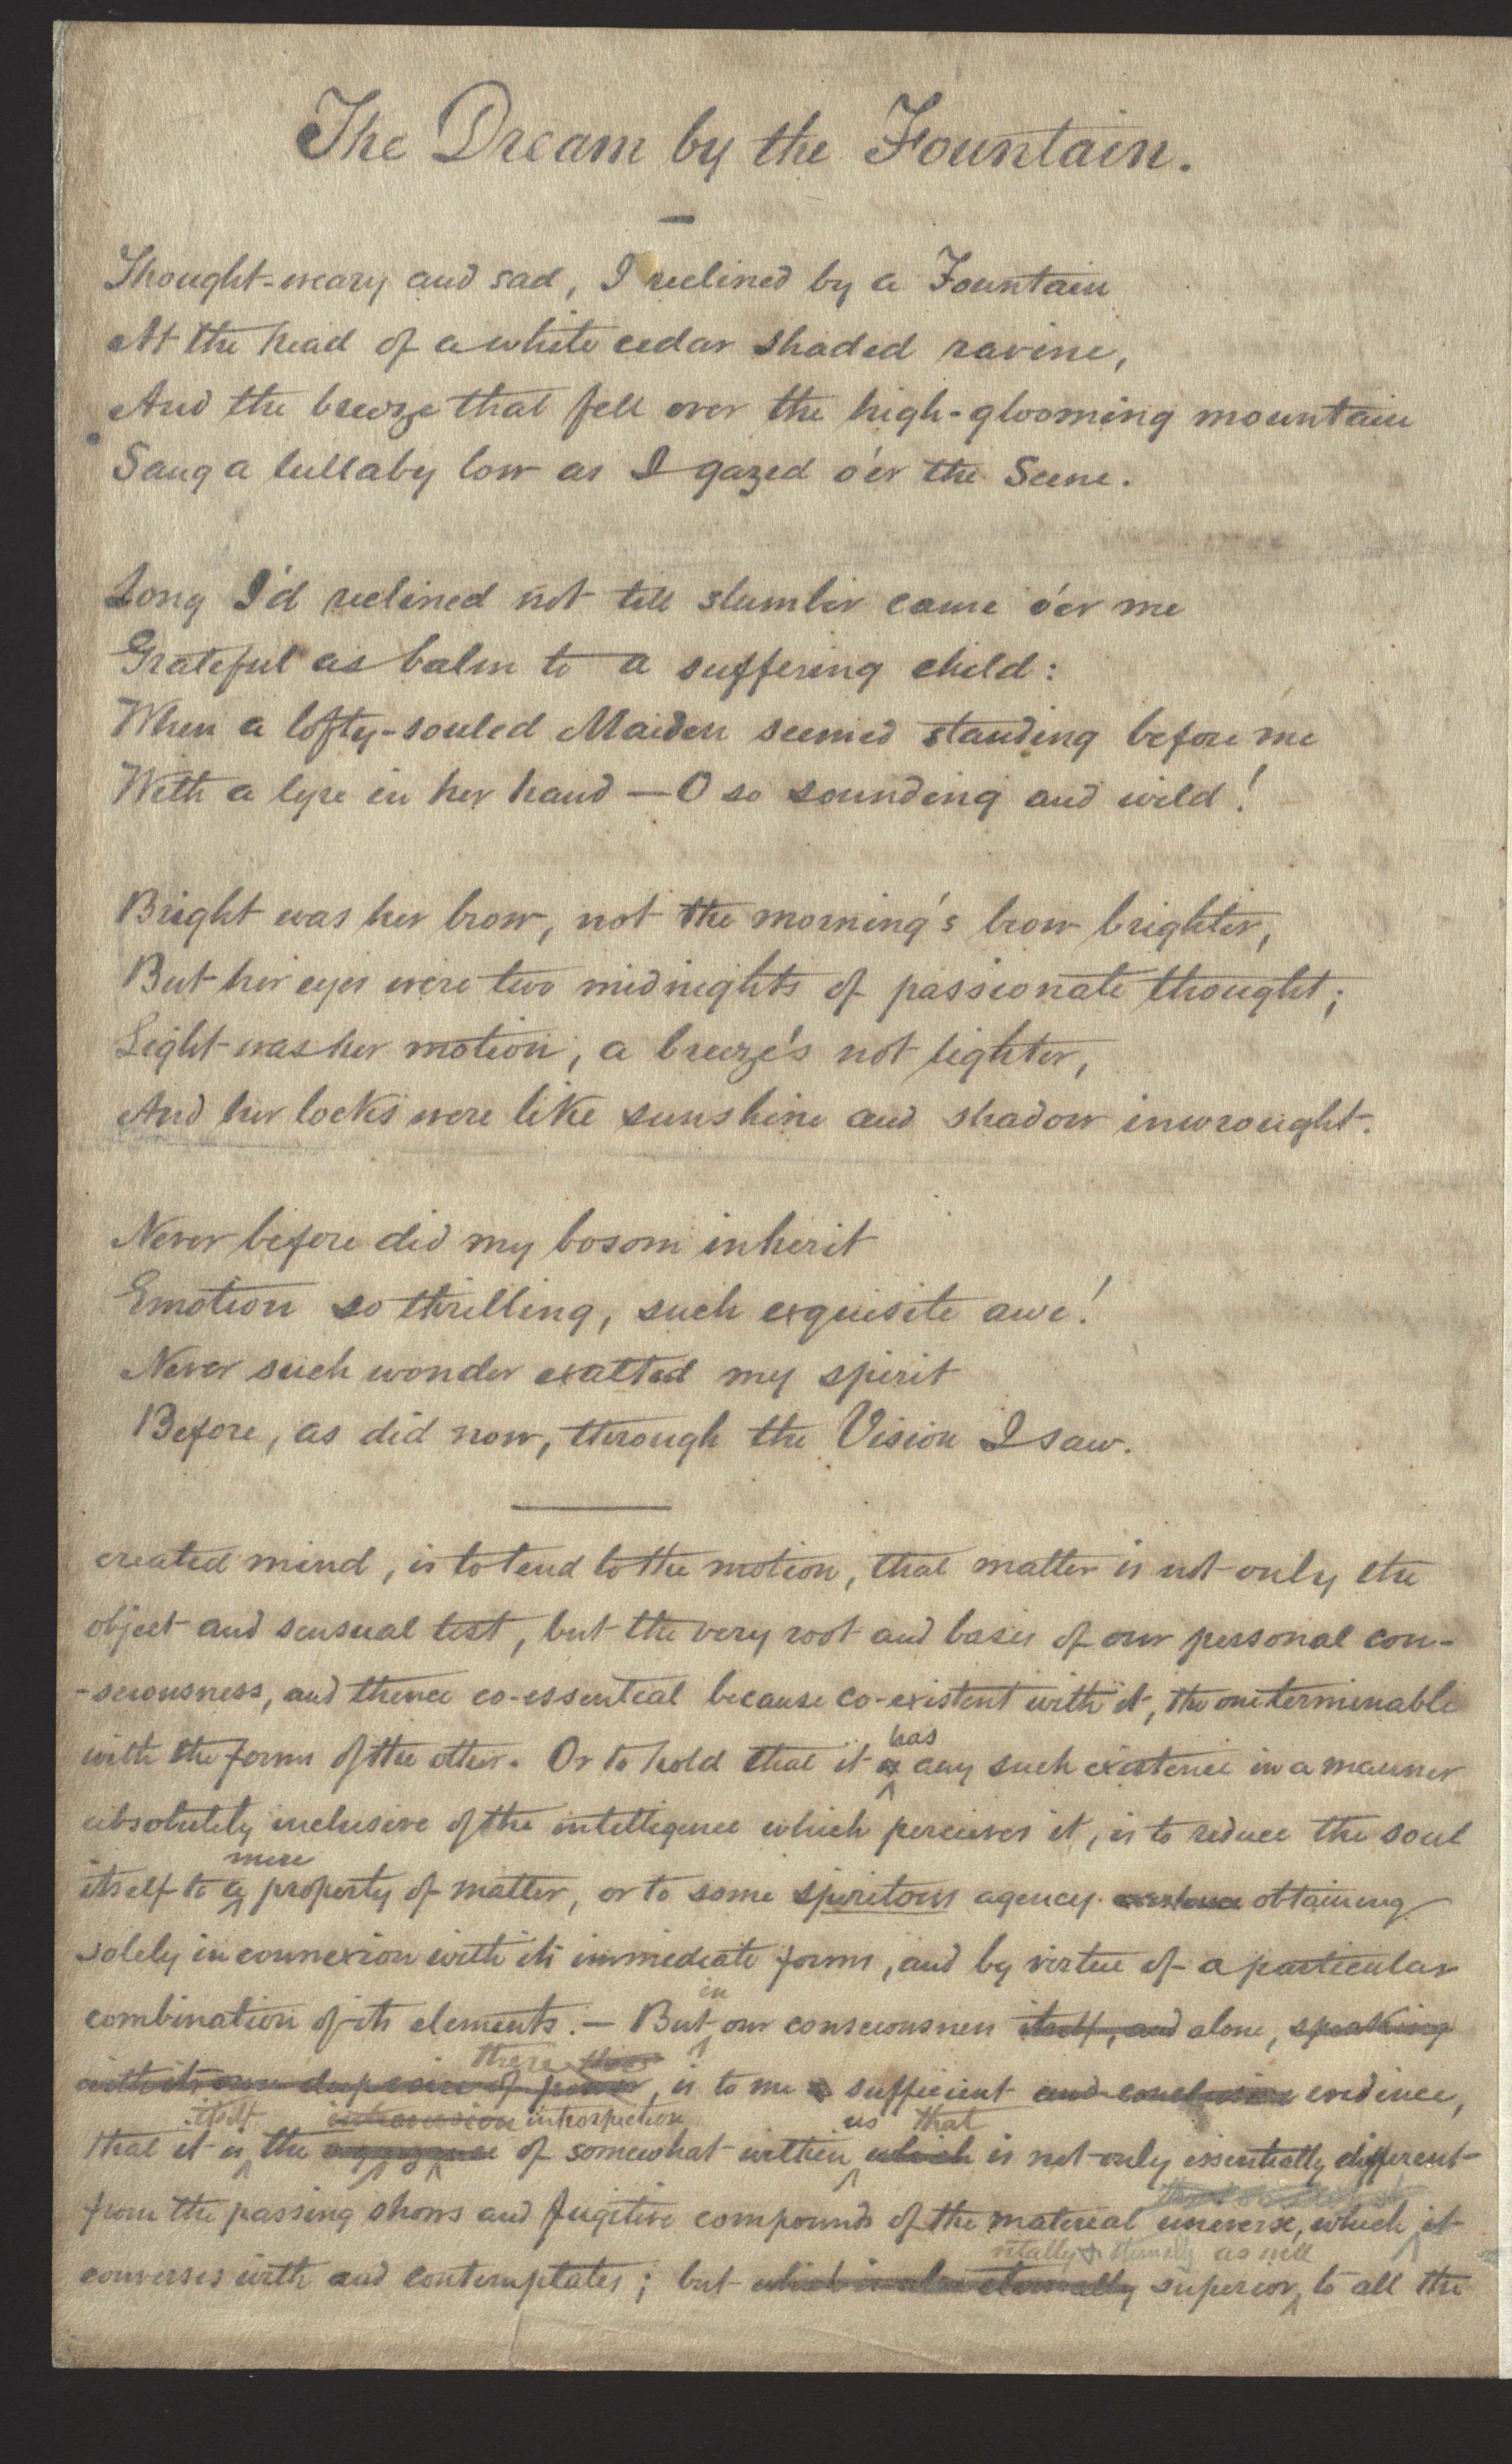 The Dream by the Fountain.
Thought-weary and sad, I reclined by a Fountain
At the head of a white cedar shaded ravine,
And the breeze that fell over the high-glooming mountain
Sang a lullaby low as I gazed o'er the Scene.
Long I'd reclined not till slumber came o'er me
Grateful as balm to a suffering child:
When a lofty-souled Maiden seemed standing before me
With a lyre in her hand — O so sounding and wild!
Bright was her brow, not the morning's brow brighter,
But her eyes were two midnights of passionate thought;
Light was her motion, a breeze's not lighter,
And her locks were like sunshine and shadow inwrought.
Never before did my bosom inherit
Emotion so thrilling, such exquisite awe!
Never such wonder exalted my spirit
Before, as did now, through the Vision I saw.
created mind, is to tend to the motion, that matter is not only the
object and sensual test, but the very root and basis of our personal con-
-sciousness, and thence co-essential because co-existent with it, the one terminable
with the forms of the other. Or to hold that it
has
any such existence in a manner
absolutely inclusive of the intelligence which perceives it, is to reduce the soul
mere
itself to a property of matter, or to some spiritous agency obtaining
solely in connexion with its immediate forms, and by virtue of a particular
in
combination of its elements. — But our consciousness itself, and alone, speaking
there
with its own deep voice of power, is to me sufficient and conclusive evidence,
itself introspection us that
that it is the of somewhat within which is not only essentially different
from the passing shows and fugitive compounds of the material universe, which it
vitally & eternally as well
converses with and contemplates; but which is also eternally superior to all the